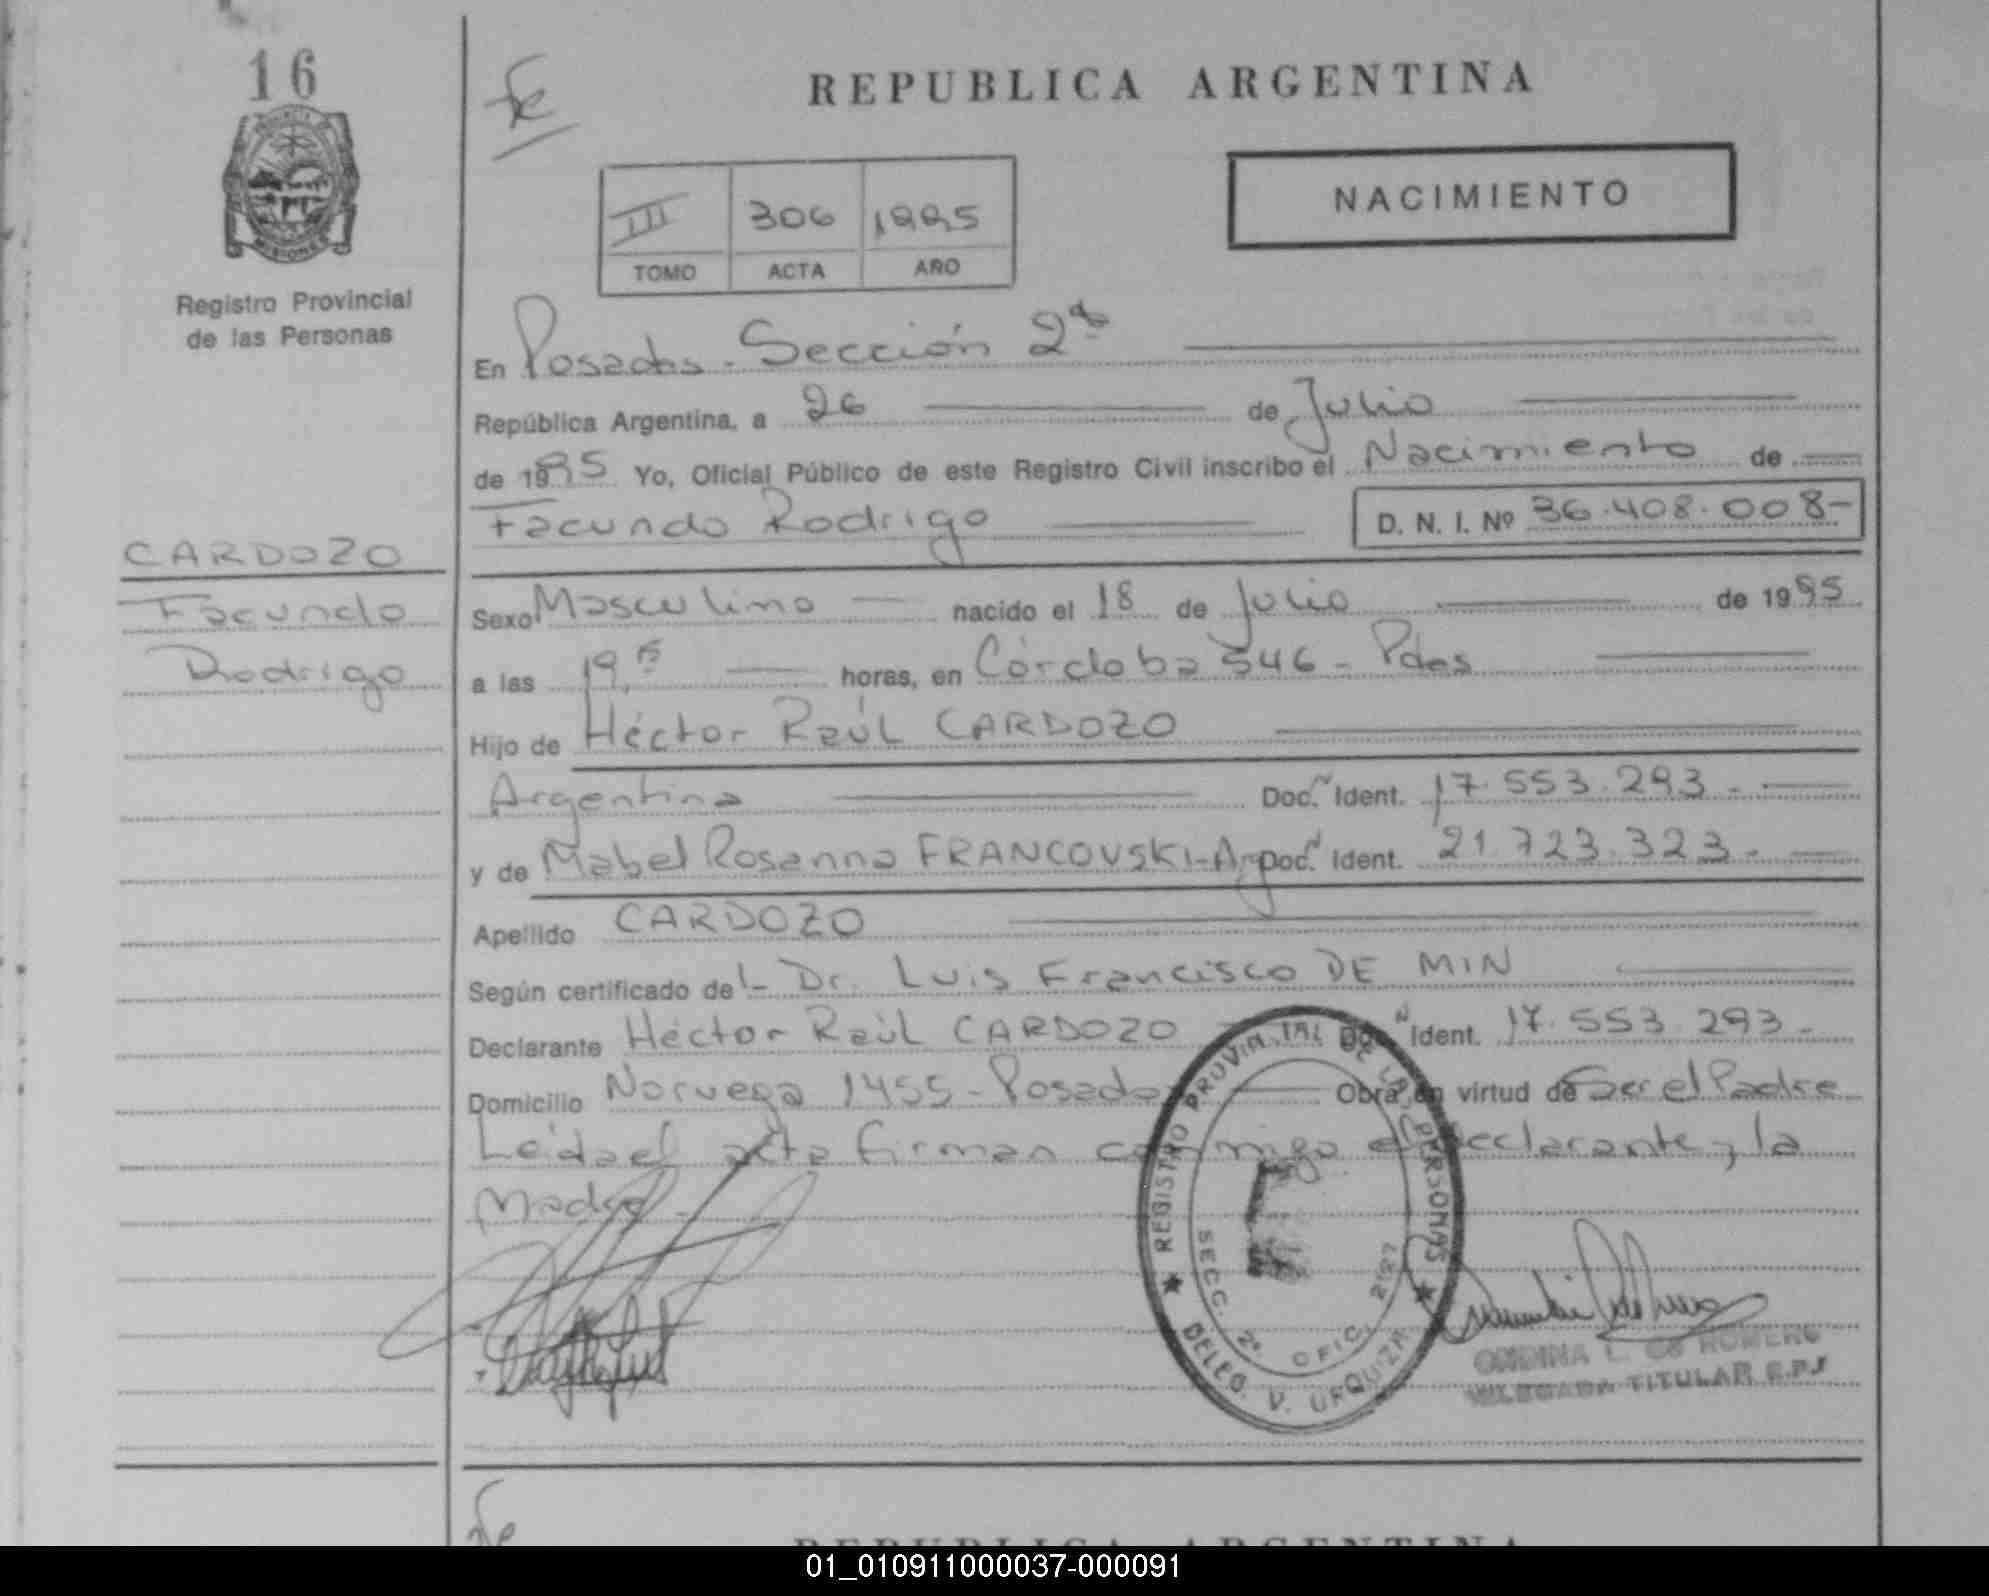 16
REPUBLICA ARGENTINA
III 306 1995
TOMO ACTA AÑO
NACIMIENTO
Registro Provincial
de las Personas
En Posadas - Sección 2ª
República Argentina, a 26 de Julio
de 1995 Yo, Oficial Público de este Registro Civil inscribo el Nacimiento de
Facundo Rodrigo D. N. I. Nº 36.408.008-
CARDOZO
Facundo
Rodrigo
Sexo Masculino nacido el 18 de Julio de 1995
a las 19, horas, en Córdoba 546 - Pdas
Hijo de Héctor Raúl CARDOZO
Argentina Doc. N Ident. 17.553.293-
y de Mabel Rosanna FRANCOVSKI-Arg Doc. N Ident. 21.723.323-
Apellido CARDOZO
Según certificado del- Dr. Luis Francisco DE MIN
Declarante Héctor Raúl CARDOZO Doc. N Ident. 17.553.293-
Domicilio Norvega 1455 - Posadas Obra en virtud de Ser el Padre
Leída el acta firman conmigo el declarante y la
Madre -
REGISTRO PROVINCIAL DE LAS PERSONAS
SECC. 2ª OFIC. 2187
DELEG. V. URQUIZA
ONDINA L. de ROMERO
DELEGADA TITULAR R.P.P.
REPUBLICA ARGENTINA
01_010911000037-000091